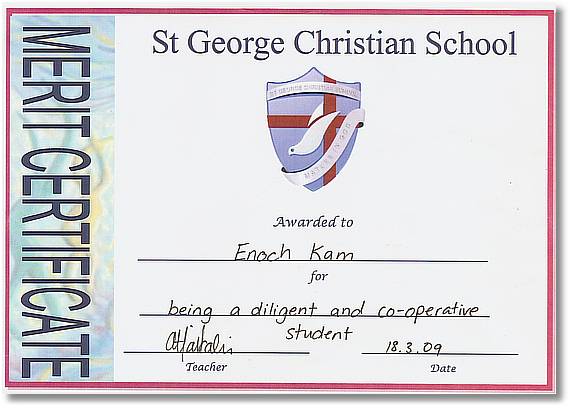 MERIT CERTIFICATE
St George Christian School
ST GEORGE CHRISTIAN SCHOOL
MATURE IN GOD
Awarded to
Enoch Kam
for
being a diligent and co-operative
student
18.3.09
Teacher
Date